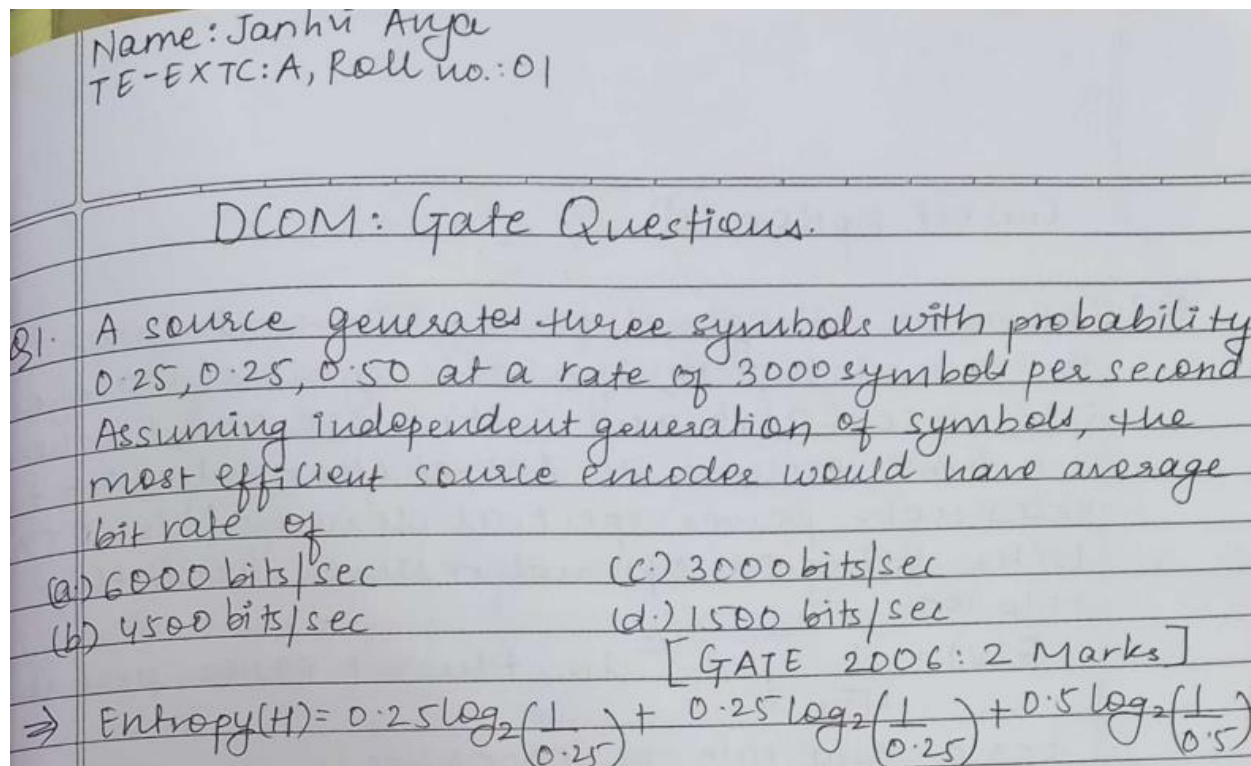 Name: Janhvi Arya
TE-EXTC: A, Roll no.: 01
DCOM: Gate Questions.
Q1. A source generates three symbols with probability
0.25, 0.25, 0.50 at a rate of 3000 symbols per second
Assuming independent generation of symbols, the
most efficient source encoder would have average
bit rate of
(a.) 6000 bits/sec (c.) 3000 bits/sec
(b) 4500 bits/sec (d.) 1500 bits/sec
[GATE 2006: 2 Marks]
⇒ Entropy(H) = 0.25 log₂(1/0.25) + 0.25 log₂(1/0.25) + 0.5 log₂(1/0.5)